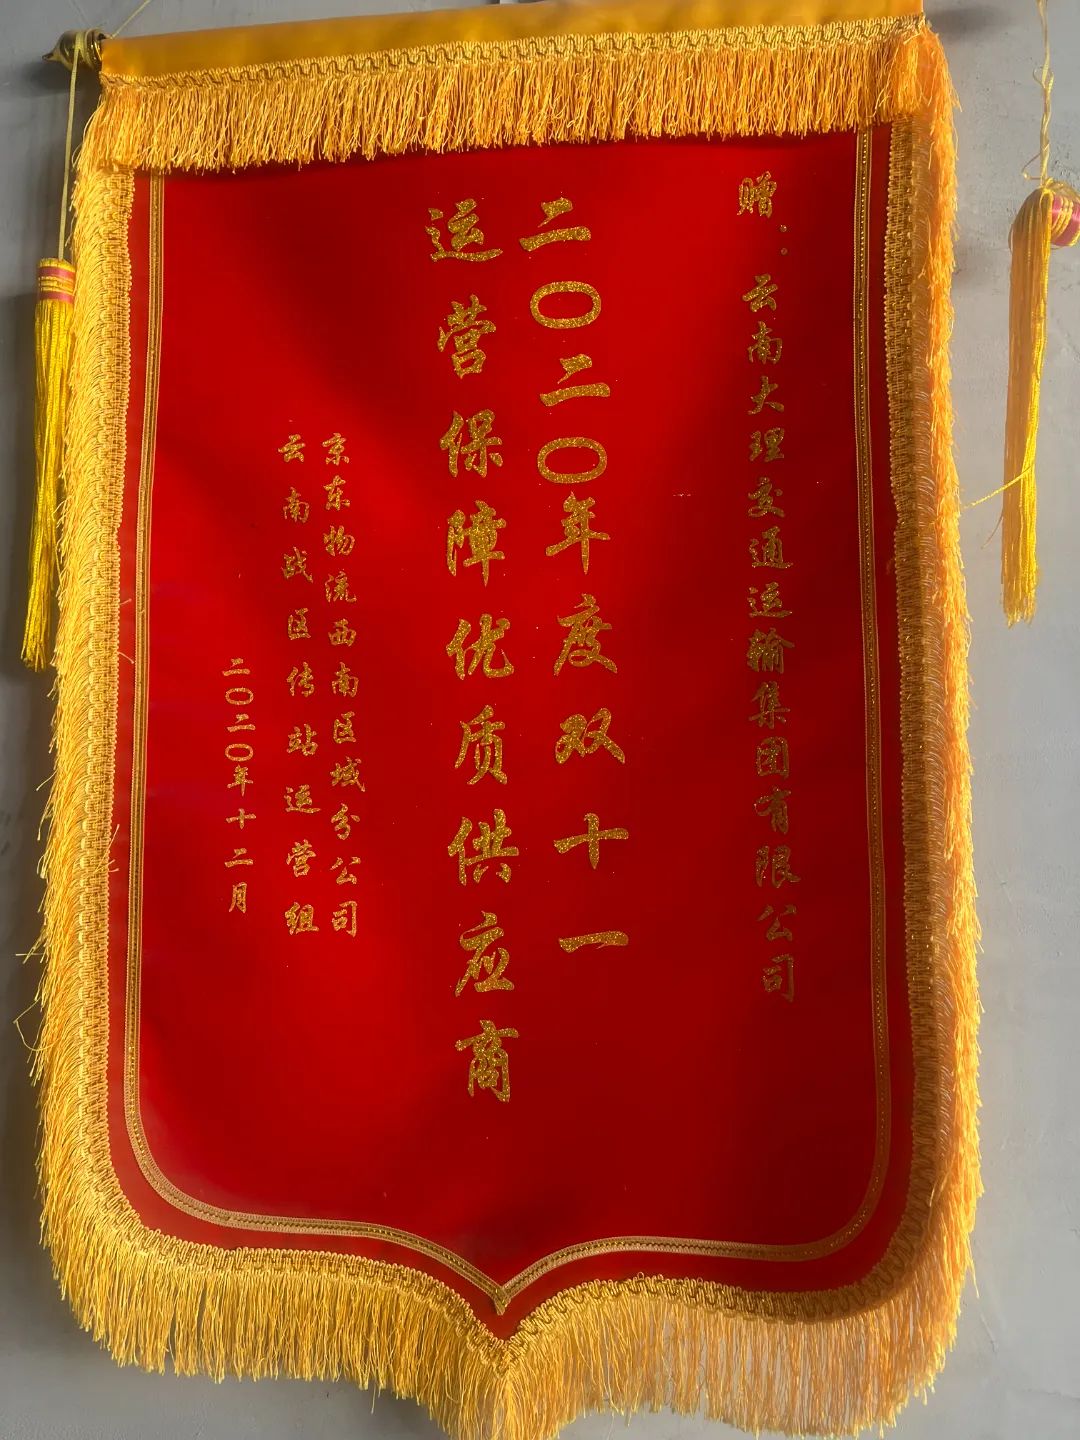 赠：云南大理交通运输集团有限公司
二〇二〇年度双十一
运营保障优质供应商
京东物流西南区域分公司
云南战区传站运营组
二〇二〇年十二月